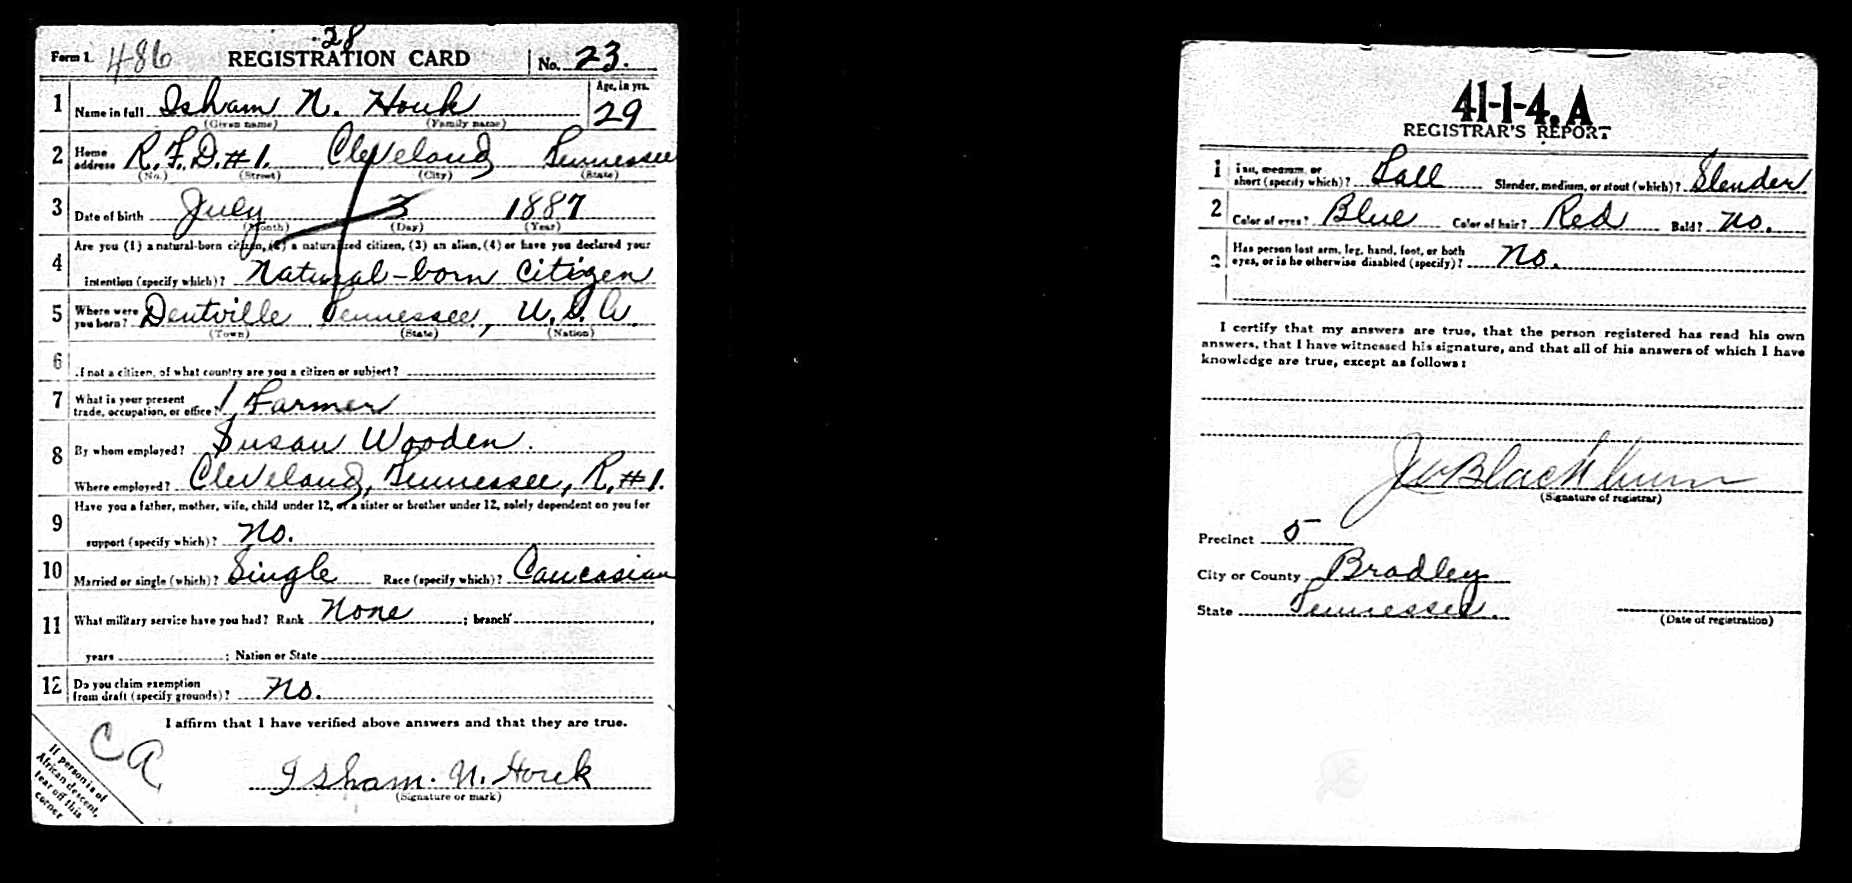 28
Form 1. 486 REGISTRATION CARD No. 23.
1 Name in full Isham N. Houk Age, in yrs. 29
(Given name) (Family name)
2 Home address R.F.D. #1. Cleveland Tennessee
(No.) (Street) (City) (State)
3 Date of birth July 3 1887
(Month) (Day) (Year)
4 Are you (1) a natural-born citizen, (2) a naturalized citizen, (3) an alien, (4) or have you declared your
intention (specify which)? Natural-born citizen
5 Where were you born? Dentville Tennessee, U.S.A.
(Town) (State) (Nation)
6 If not a citizen, of what country are you a citizen or subject?
7 What is your present trade, occupation, or office? 1 Farmer
8 By whom employed? Susan Wooden.
Where employed? Cleveland, Tennessee, R.#1.
9 Have you a father, mother, wife, child under 12, or a sister or brother under 12, solely dependent on you for
support (specify which)? No.
10 Married or single (which)? Single Race (specify which)? Caucasian
11 What military service have you had? Rank None ; branch ,
years ; Nation or State
12 Do you claim exemption from draft (specify grounds)? No.
I affirm that I have verified above answers and that they are true.
C A
Isham. N. Houk
(Signature or mark)
If person is of
African descent,
tear off this
corner
41-1-4. A
REGISTRAR'S REPORT
1 Tall, medium, or short (specify which)? Tall Slender, medium, or stout (which)? Slender
2 Color of eyes? Blue Color of hair? Red Bald? No.
3 Has person lost arm, leg, hand, foot, or both eyes, or is he otherwise disabled (specify)? No.
I certify that my answers are true, that the person registered has read his own
answers, that I have witnessed his signature, and that all of his answers of which I have
knowledge are true, except as follows:
Blackburn
(Signature of registrar)
Precinct 5
City or County Bradley
State Tennessee.
(Date of registration)